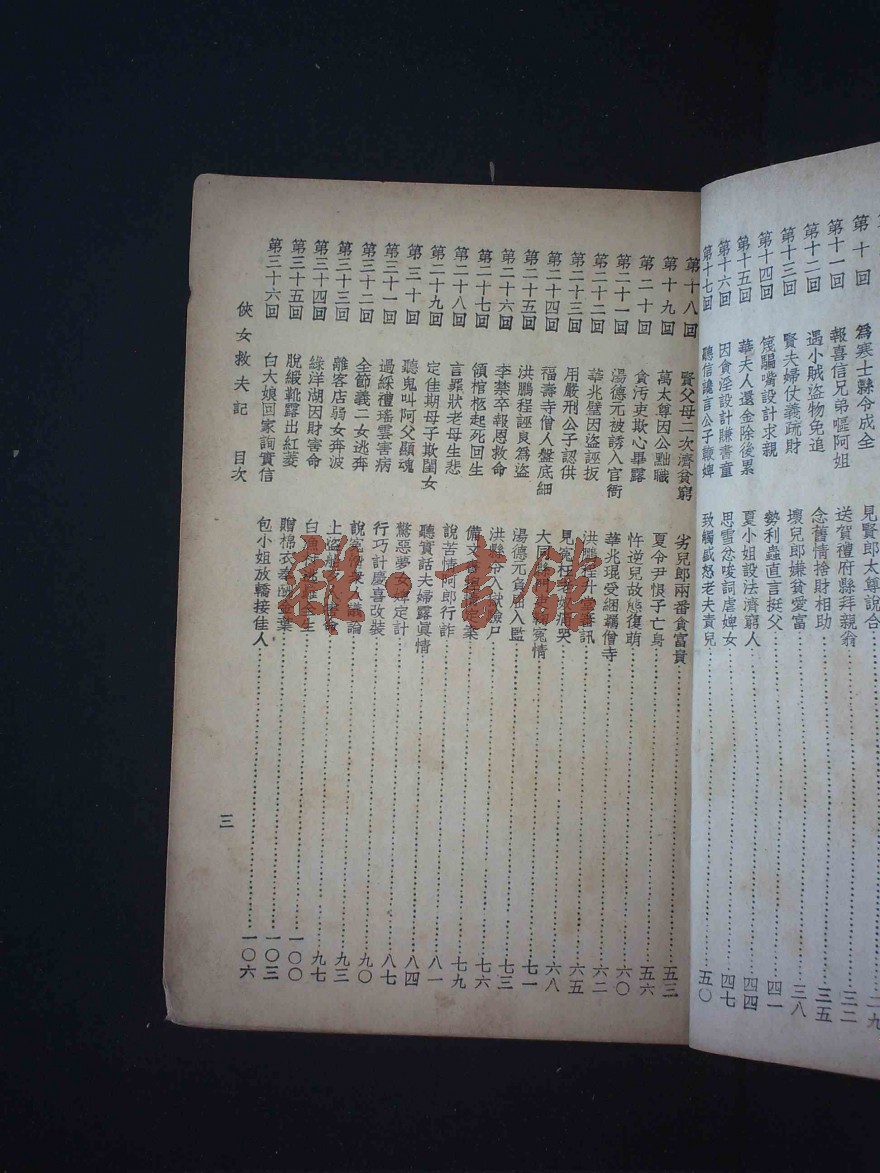 第十回 爲寒士縣令成全 見賢郎太尊說合 二九
第十一回 報喜信兄弟嘔阿姐 送賀禮府縣拜親翁 三二
第十二回 遇小賊盜物免追 念舊情捨財相助 三五
第十三回 賢夫婦仗義疏財 壞兒郎嫌貧愛富 三八
第十四回 篾騙嘴設計求親 勢利蟲直言挺父 四一
第十五回 華夫人還金除後累 夏小姐設法濟窮人 四四
第十六回 因貪淫設計賺書童 思雪忿唆詞虐婢女 四七
第十七回 聽信讒言公子鞭婢 致觸威怒老夫責兒 五〇
第十八回 賢父母二次濟貧窮 劣兒郎兩番貪富貴 五三
第十九回 萬太尊因公黜職 夏令尹恨子亡身 五六
第二十回 貪汚吏欺心畢露 忤逆兒故態復萌 六〇
第二十一回 湯德元被誘入官衙 華兆琨受綑羈僧寺 六二
第二十二回 華兆璧因盜誣扳 洪鵬程 訊 六五
第二十三回 用嚴刑公子認供 見 哭 六八
第二十四回 福壽寺僧人盤底細 大 寃情 七一
第二十五回 洪鵬程誣良爲盜 湯德元負屈入監 七三
第二十六回 李禁卒報恩救命 洪縣令入獄驗尸 七六
第二十七回 領棺柩起死回生 備文 定案 七九
第二十八回 言罪狀老母生悲 說苦情阿郎行詐 八一
第二十九回 定佳期母子欺閨女 聽實話夫婦露眞情 八四
第三十回 聽鬼叫阿父顯魂 驚惡夢女婢定計 八七
第三十一回 過綵禮瑤雲害病 行巧計慶喜改裝 九〇
第三十二回 全節義二女逃奔 說寃 議論 九三
第三十三回 離客店弱女奔波 上盜船 命 九七
第三十四回 綠洋湖因財害命 白 生 一〇〇
第三十五回 脫緞靴露出紅菱 贈棉衣奉酬金葉 一〇三
第三十六回 白大娘回家詢實信 包小姐放轎接佳人 一〇六
俠女救夫記 目次 三
雜·書館